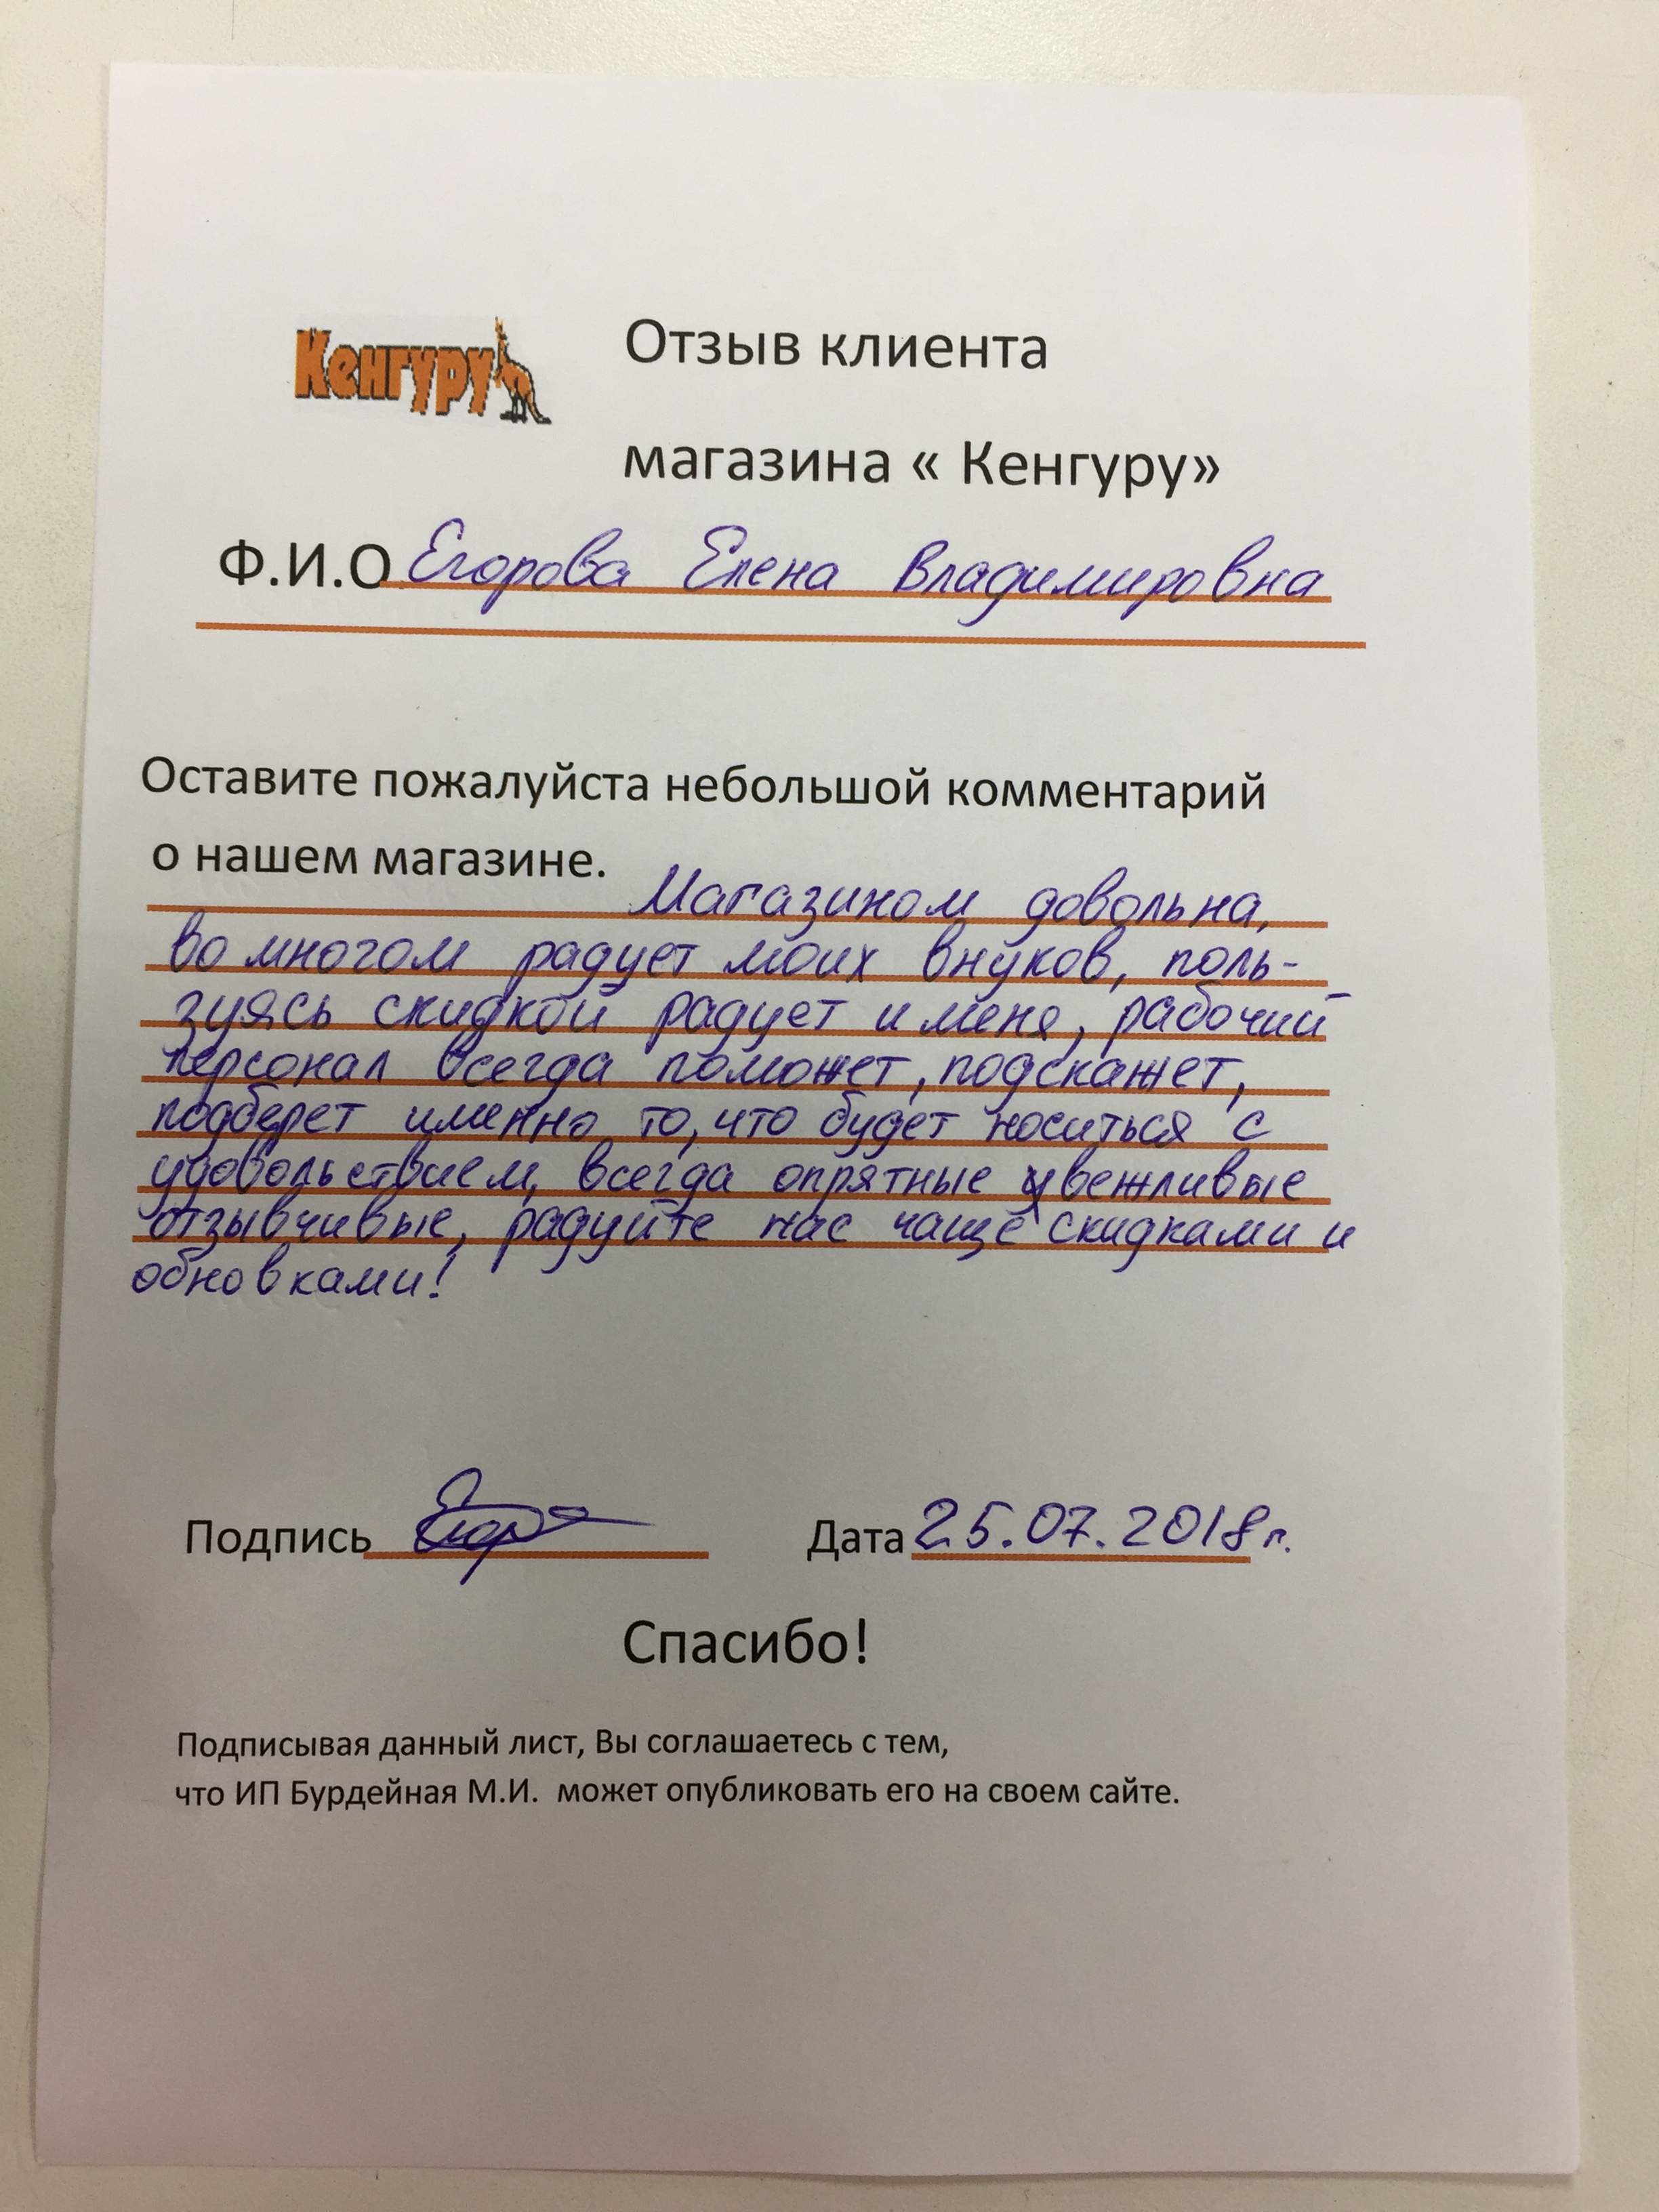 Кенгуру
Отзыв клиента
магазина « Кенгуру»
Ф.И.О Егорова Елена Владимировна
Оставите пожалуйста небольшой комментарий
о нашем магазине.
Магазином довольна,
во многом радует моих внуков, поль-
зуясь скидкой радует и меня, рабочий
персонал всегда поможет, подскажет,
подберет именно то, что будет носиться с
удовольствием, всегда опрятные и вежливые
отзывчивые, радуйте нас чаще скидками и
обновками!
Подпись Егор Дата 25.07.2018г.
Спасибо!
Подписывая данный лист, Вы соглашаетесь с тем,
что ИП Бурдейная М.И. может опубликовать его на своем сайте.